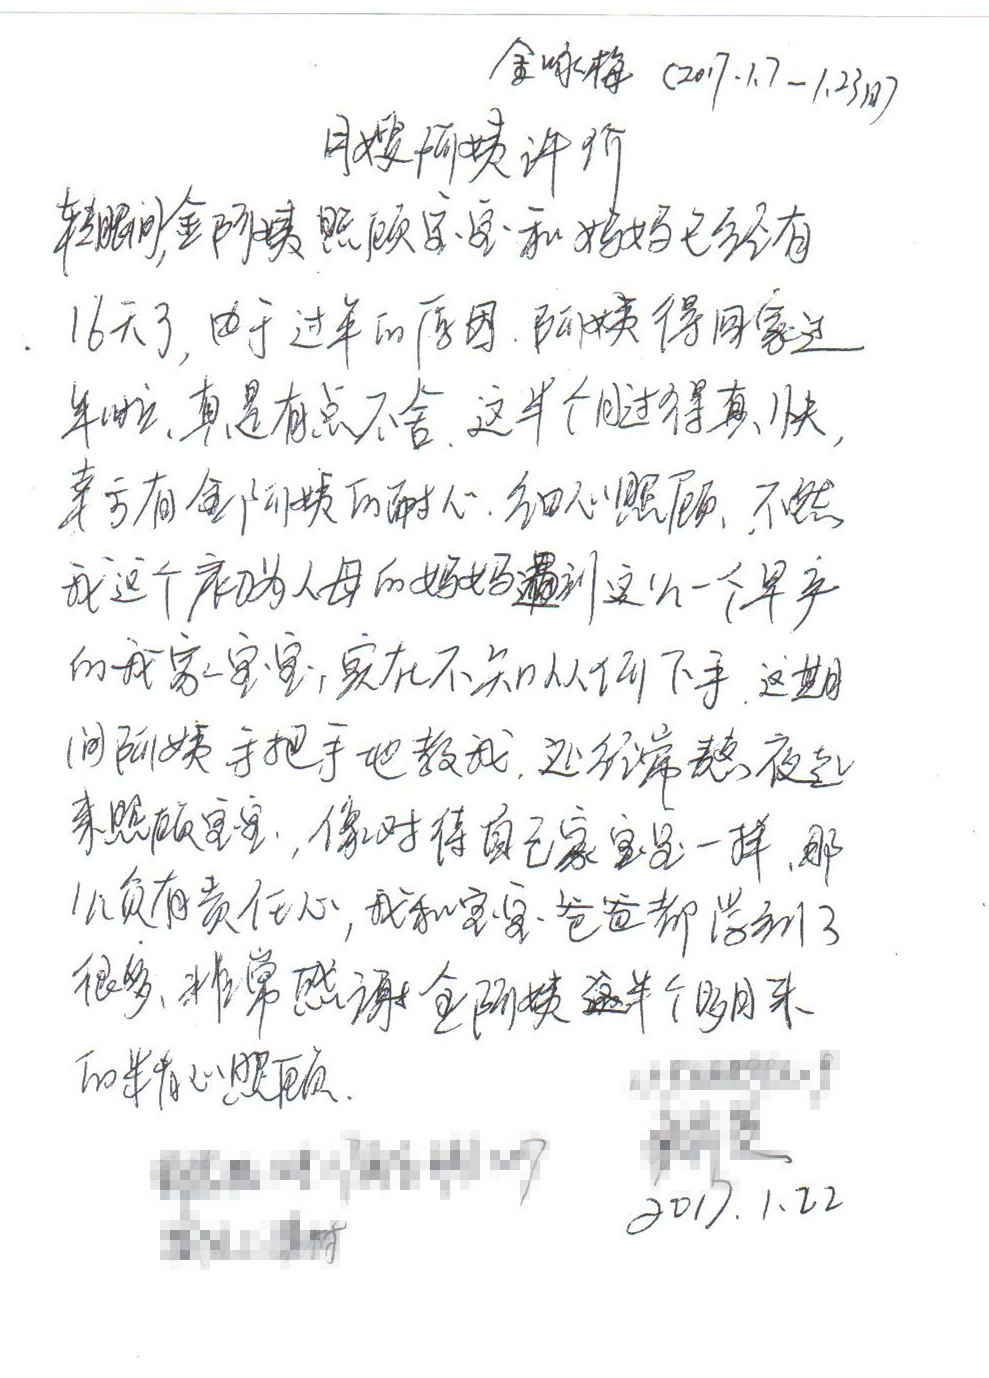 金咏梅 (2017.1.7-1.23日)
月嫂阿姨评价
转眼间,金阿姨照顾宝宝和妈妈已经有
16天了,由于过年的原因.阿姨得回家过
年啦、真是有点不舍.这半个月过得真快,
幸亏有金阿姨的耐心.细心照顾、不然
我这个初为人母的妈妈遇到这么一个早产
的我家宝宝,实在不知从何下手.这期
间阿姨手把手地教我.还经常熬夜起
来照顾宝宝,像对待自己家宝宝一样、那
么负有责任心,我和宝宝爸爸都学到了
很多、非常感谢金阿姨这半个多月来
的精心照顾.
2017.1.22